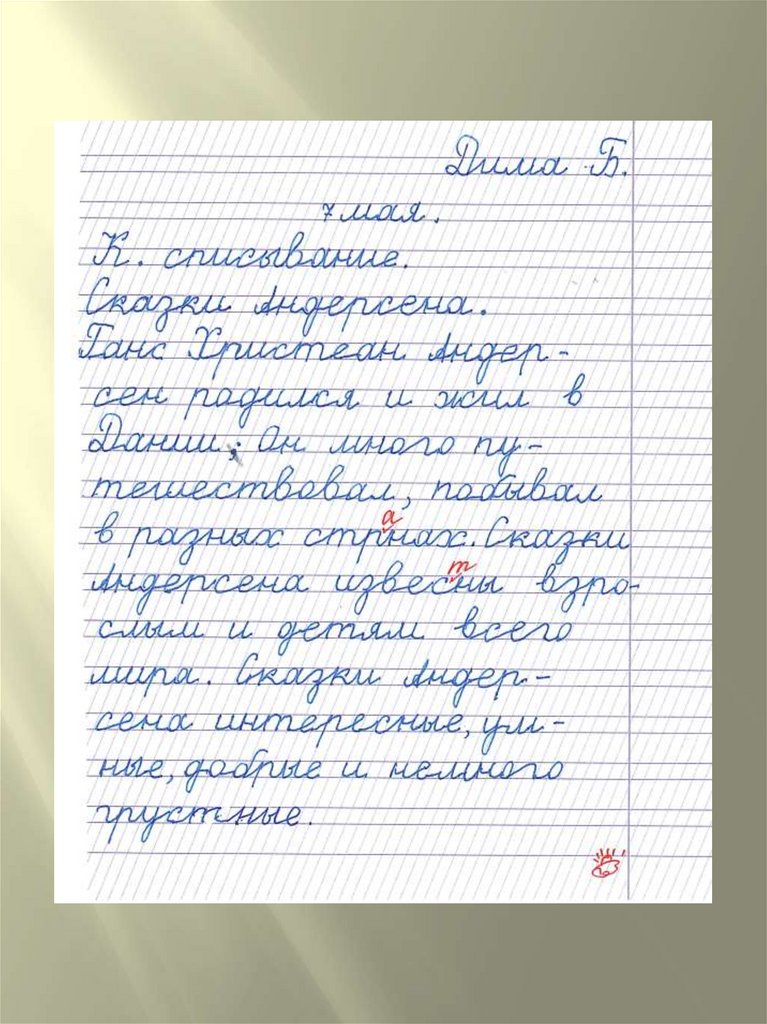 Дима Б.
7 мая.
К. списывание.
Сказки Андерсена.
Ганс Христеан Андер-
сен радился и жил в
Дании. Он много пу-
тешествовал, побывал
а
в разных стрнах. Сказки
т
Андерсена извесны взро-
слым и детям всего
мира. Сказки Андер-
сена интересные, ум-
ные, добрые и немного
грустные.